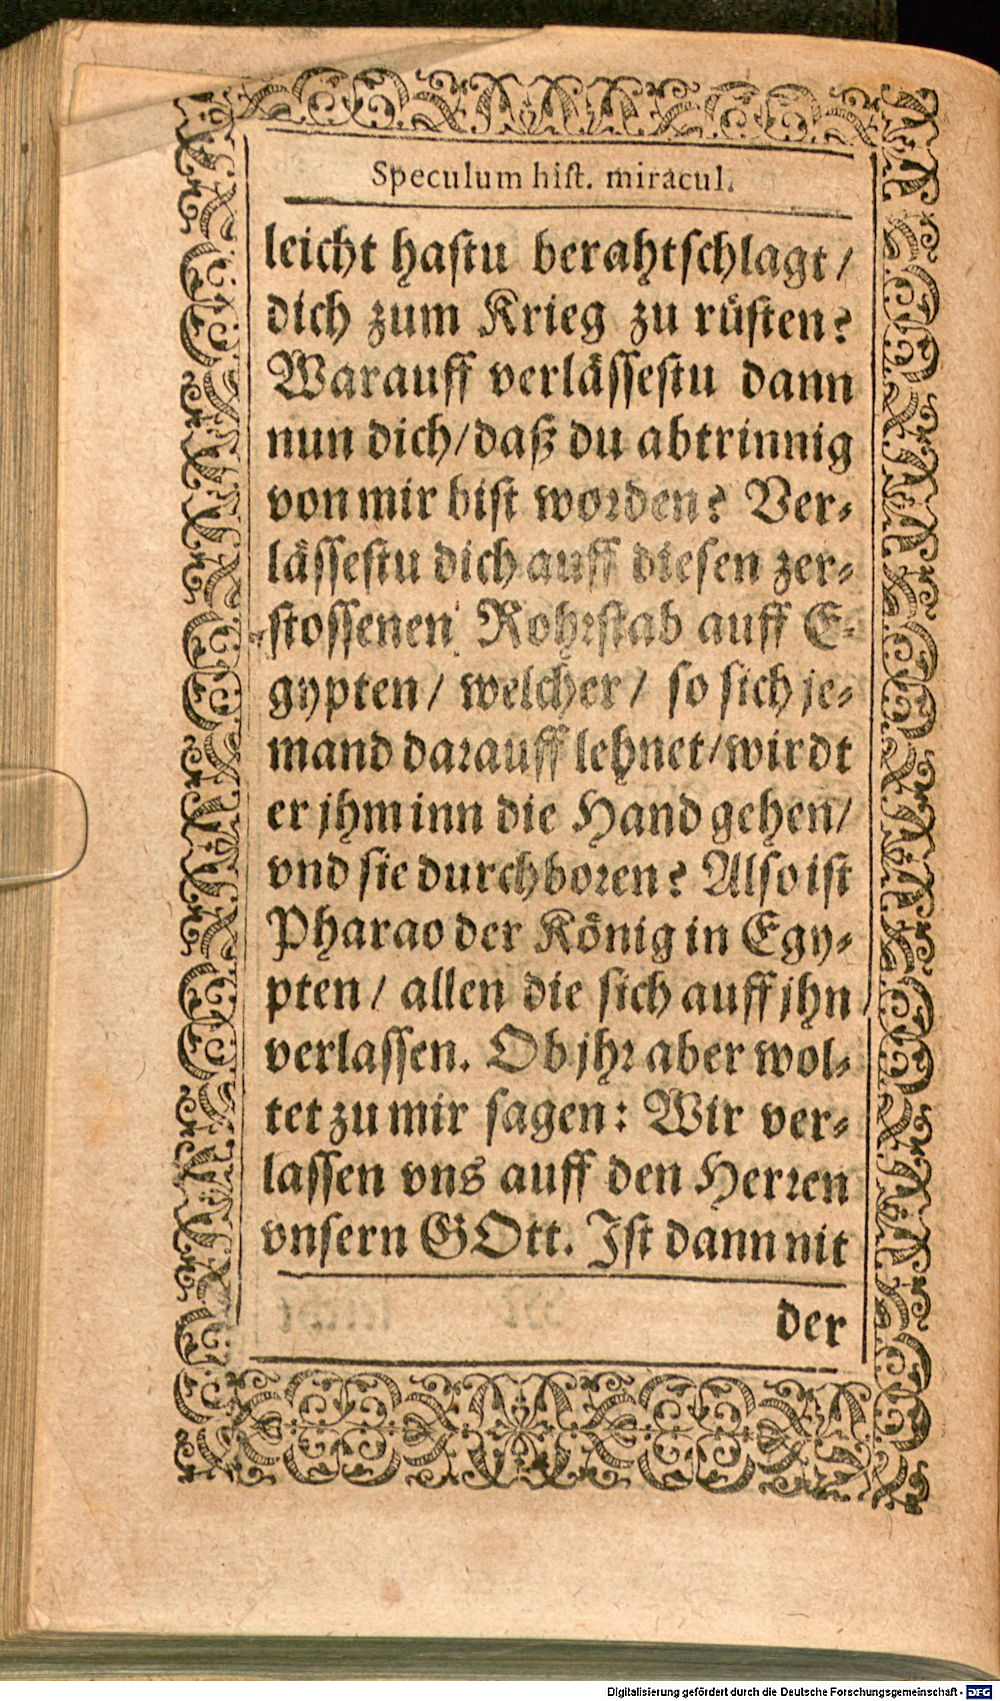 Speculum hist. miracul.
leicht hastu berahtschlagt /
dich zum Krieg zu rüsten?
Warauff verlässestu dann
nun dich / daß du abtrinnig
von mir bist worden? Ver-
lässestu dich auff diesen zer-
stossenen Rohrstab auff E-
gypten / welcher / so sich je-
mand darauff lehnet / wirdt
er jhm inn die Hand gehen /
vnd sie durchboren? Also ist
Pharao der König in Egy-
pten / allen die sich auff jhn
verlassen. Ob jhr aber wol-
tet zu mir sagen: Wir ver-
lassen vns auff den Herren
vnsern GOtt. Ist dann nit
der
Digitalisierung gefördert durch die Deutsche Forschungsgemeinschaft - DFG